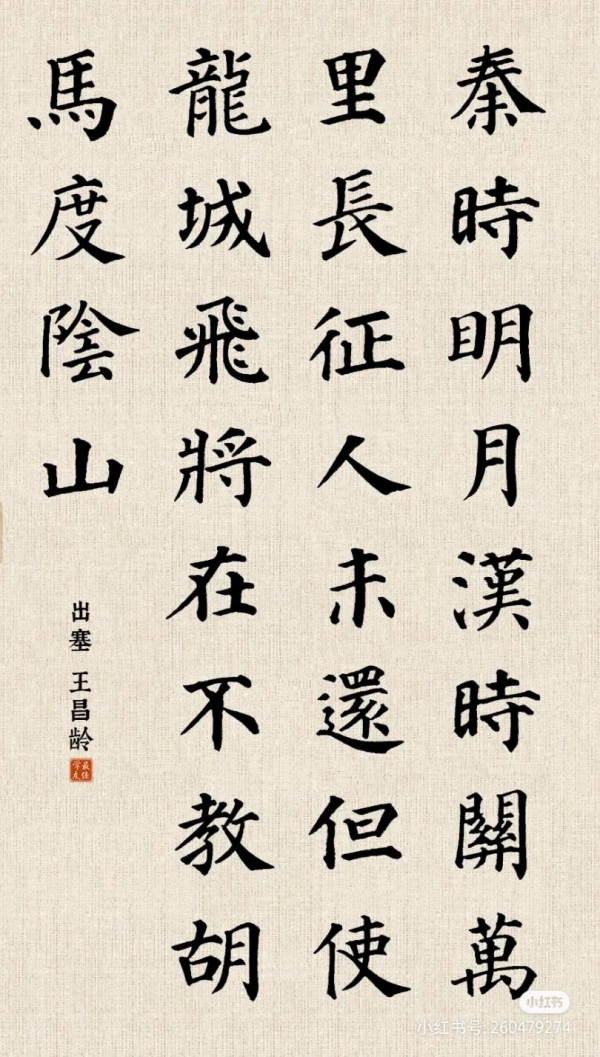 秦時明月漢時關萬
里長征人未還但使
龍城飛將在不教胡
馬度陰山
出塞 王昌龄
最佳
学友
小红书
小红书号:260479274